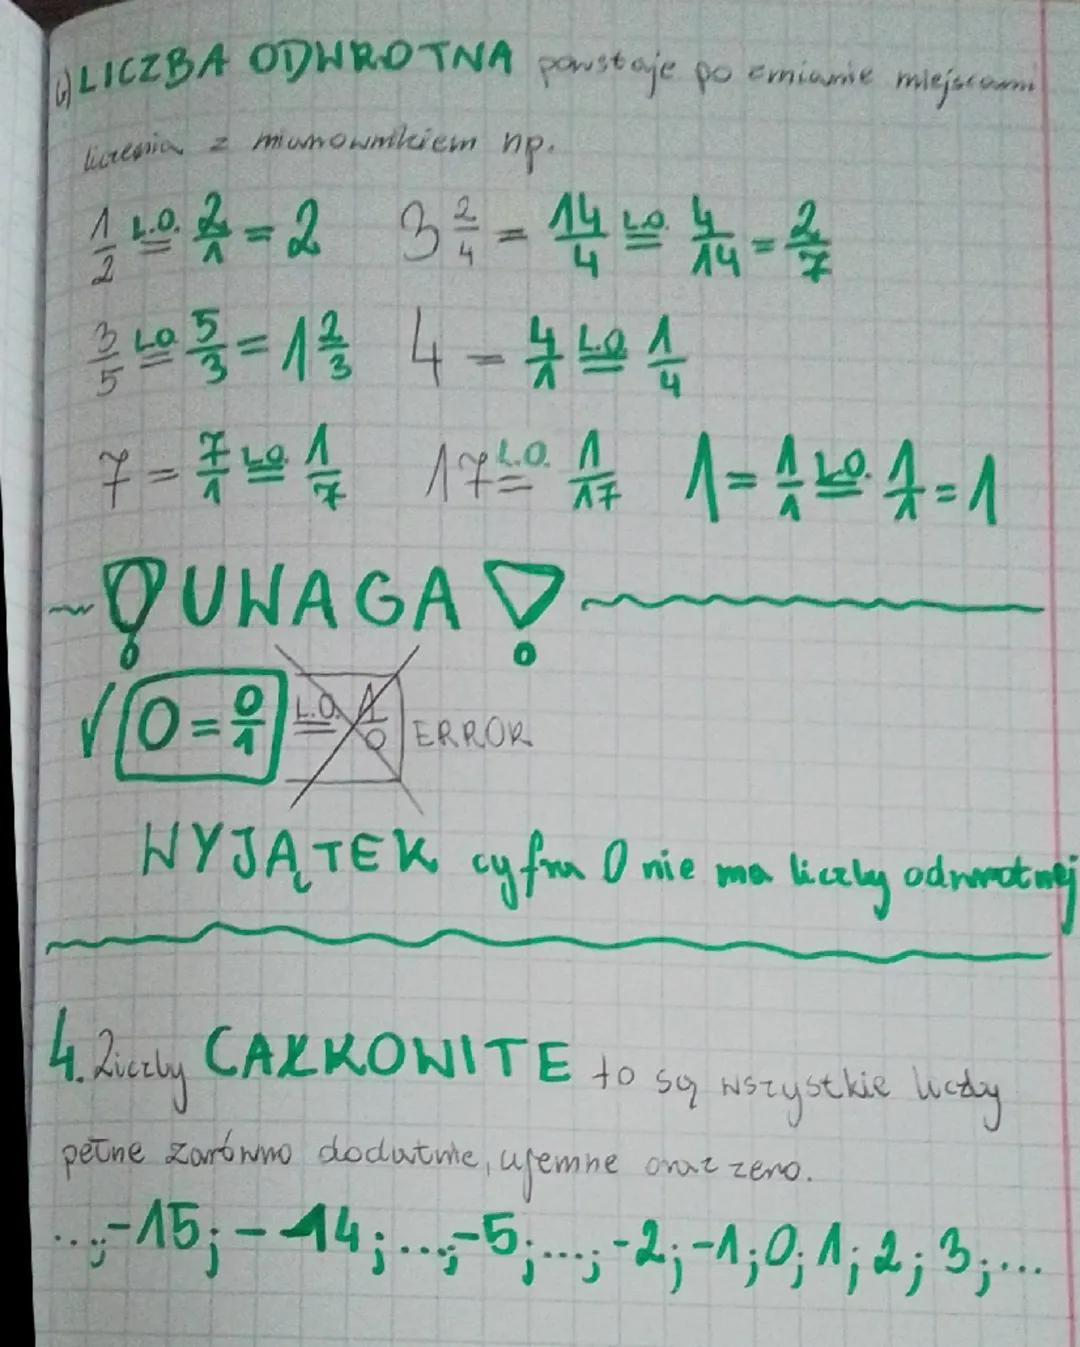 c) LICZBA ODWROTNA powstaje po zmianie miejscami
licznia z mianownikiem np.
1/2 L.O. = 2/1 = 2   3 2/4 = 14/4 L.O. = 4/14 = 2/7
3/5 L.O. = 5/3 = 1 2/3   4 = 4/1 L.O. = 1/4
7 = 7/1 L.O. = 1/7   17 L.O. = 1/17   1 = 1/1 L.O. = 1/1 = 1
! UWAGA !
√ 0 = 0/1 L.O. = 1/0 ERROR
WYJĄTEK cyfra 0 nie ma liczby odwrotnej
4. Liczby CAŁKOWITE to są wszystkie liczby
pełne zarówno dodatnie, ujemne oraz zero.
...;-15; -14; ...;-5; ...; -2; -1; 0; 1; 2; 3; ...